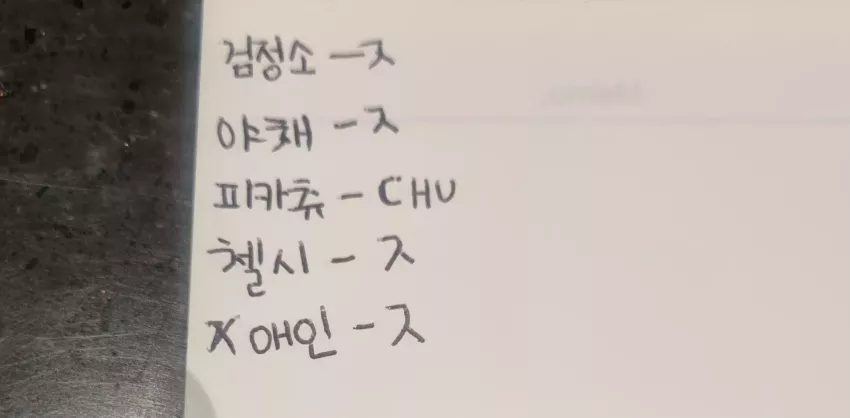 검정소 - ㅈ
야채 - ㅈ
피카츄 - CHU
첼시 - ㅈ
애인 - ㅈ